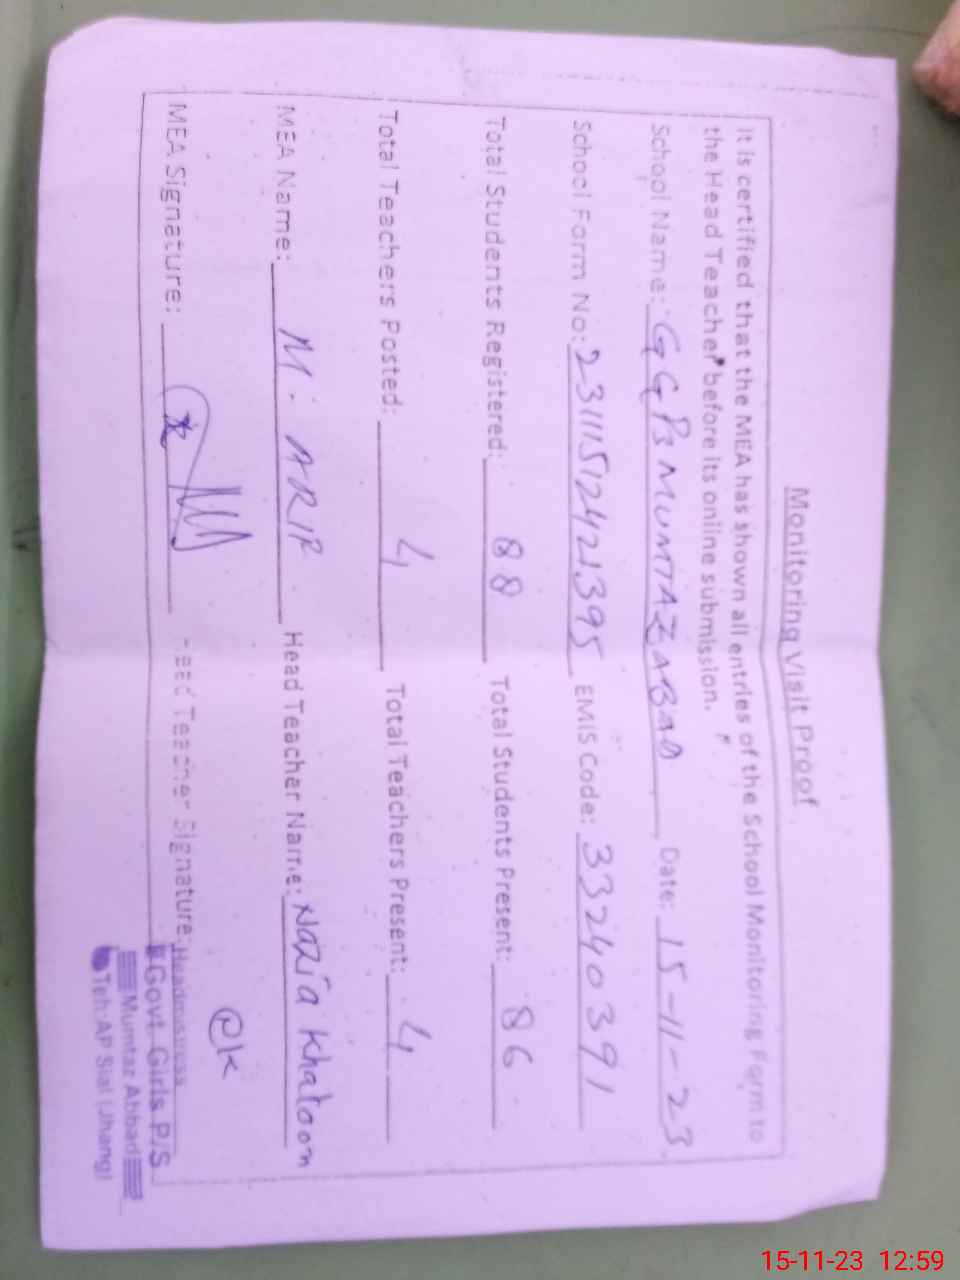 Monitoring Visit Proof
It is certified that the MEA has shown all entries of the School Monitoring Form to
the Head Teacher before its online submission.
School Name: GGPS MUMTAZABAD Date: 15-11-23
School Form No: EMIS Code: 33240391
Total Students Registered: 88 Total Students Present: 86
Total Teachers Posted: 4 Total Teachers Present: 4
MEA Name: M. ARIF Head Teacher Name: Nazia Khatoon
MEA Signature: Head Teacher Signature:
Headmistress
Govt. Girls P/S
Mumtaz Abbad
Teh: AP Sial (Jhang)
15-11-23 12:59